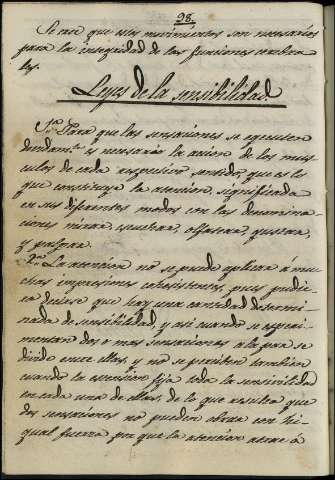 98.
Se cree que estos movimientos son necesarios
para la integridad de las funciones cerebra
les.
Leyes de la sensibilidad.
1.ª Para que las sensaciones se ejecuten
devidam.te es necesario la accion de los mus
culos de cada respectivo sentido, que es lo
que constituye la atencion, significada
en sus diferentes modos con las denomina-
ciones mirar, escuchar, olfatear, gustar
y palpar.
2.ª La atencion no se puede aplicar á mu
chas impresiones coexistentes, pues pudie
ra decirse que hay una cantidad determi
nada de sensibilidad, y asi cuando se esperi
mentan dos o mas sensaciones a la par se
divide entre ellas, y no se perciben tambien
cuando la atencion fija toda la sensivilidad
en cada una de ellas, de lo que resulta que
dos sensaciones no pueden obrar con hi-
gual fuerza por que la atencion atrae á